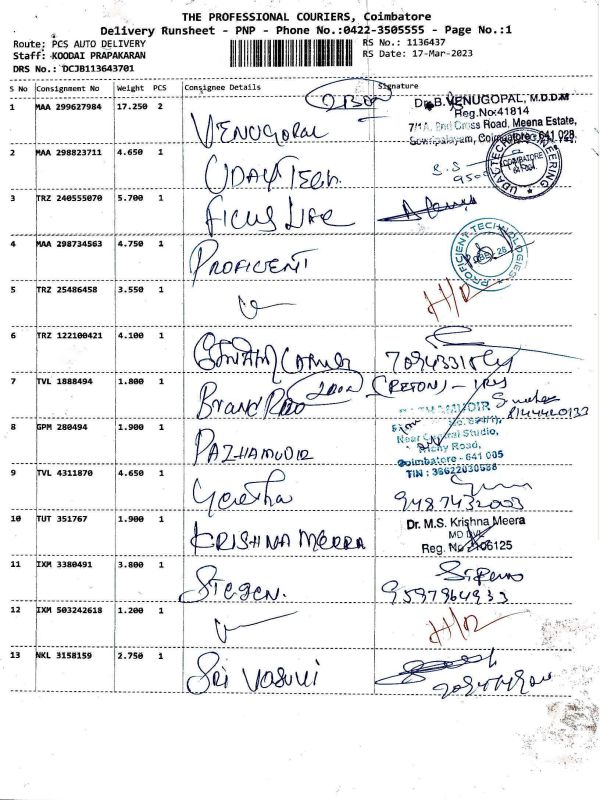 THE PROFESSIONAL COURIERS, Coimbatore
Delivery Runsheet - PNP - Phone No.:0422-3505555 - Page No.:1
Route: PCS AUTO DELIVERY
RS No.: 1136437
Staff: KOODAI PRAPAKARAN
RS Date: 17-Mar-2023
DRS No.: DCJB113643701
S No Consignment No Weight PCS Consignee Details Signature
1 MAA 299627984 17.250 2 VENUGOPAL
Dr. B. VENUGOPAL, M.D.D.M
Reg.No:41814
7/1A, 2nd Cross Road, Meena Estate,
Sowripalayam, Coimbatore - 641 028
2 MAA 298823711 4.650 1 UDAY Tech.
UDAC TECH ENGINEERING
COIMBATORE
3 TRZ 240555070 5.700 1 Ficus Life
4 MAA 298734563 4.750 1 PROFICIENT
PROFICIENT TECHNOLOGIES
5 TRZ 25486458 3.550 1 H/R
6 TRZ 122100421 4.100 1
7 TVL 1888494 1.800 1 Brand
8 GPM 280494 1.900 1 PAZHAMUDIR
Near Central Studio,
Trichy Road,
Coimbatore - 641 005
TIN : 33622030538
9 TVL 4311870 4.650 1
9487432003
10 TUT 351767 1.900 1 KRISHNA MEERA
Dr. M.S. Krishna Meera
MD DVL
Reg. No 106125
11 IXM 3380491 3.800 1
9597964933
12 IXM 503242618 1.200 1 H/R
13 NKL 3158159 2.750 1 Sri Vasuvi